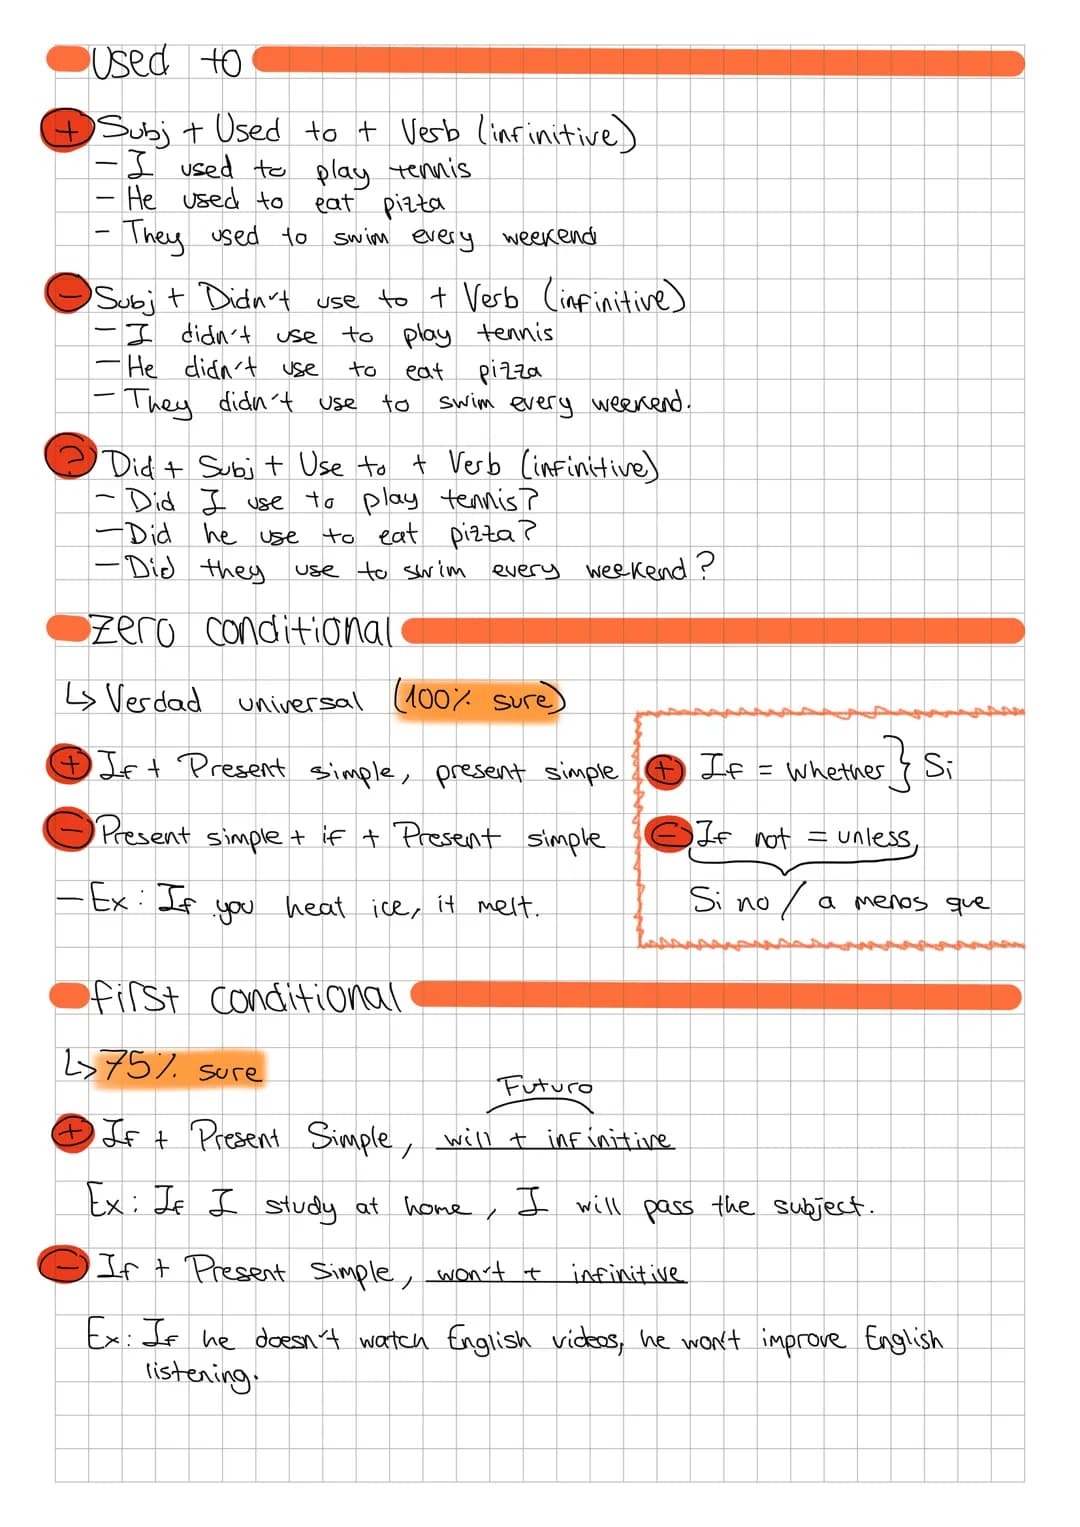 used to
+ Subj + Used to + Verb (infinitive)
- I used to play tennis
- He used to eat pizza
- They used to swim every weekend
- Subj + Didn't use to + Verb (infinitive)
- I didn't use to play tennis
- He didn't use to eat pizza
- They didn't use to swim every weekend.
? Did + Subj + Use to + Verb (infinitive)
- Did I use to play tennis?
- Did he use to eat pizza?
- Did they use to swim every weekend?
zero conditional
↳ Verdad universal (100% sure)
+ If + Present simple, present simple
- Present simple + if + Present simple
- Ex: If you heat ice, it melt.
+ If = whether } Si
- If not = unless,
Si no / a menos que
first conditional
↳ 75% sure
Futuro
+ If + Present Simple, will + infinitive
Ex: If I study at home, I will pass the subject.
- If + Present Simple, won't + infinitive
Ex: If he doesn't watch English videos, he won't improve English
listening.